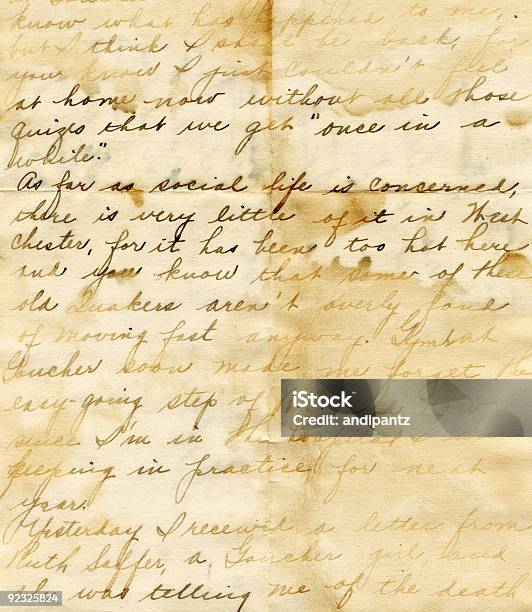 know what has happened to me,
but I think I shall be back, for
you know I just couldn't feel
at home now without all those
quizes that we get "once in a
while."
As far as social life is concerned,
there is very little of it in West
Chester, for it has been too hot here
and you know that some of these
old Quakers aren't overly fond
of moving fast anyway. Gym at
Goucher soon made me forget the
easy-going step of
iStock
Credit: andipantz
since I'm in the
keeping in practice for next
year.
Yesterday I received a letter from
Ruth Saffer, a Goucher girl, and
she was telling me of the death
92325824